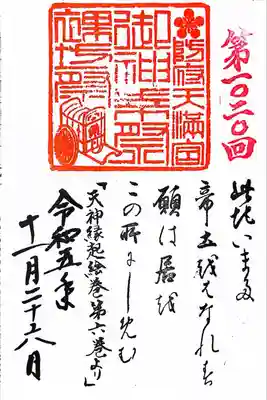 第一〇二〇回
防府天満宮
御神幸祭
裸坊祭
此地いまた
帝土越はなれす
願は居越
この所にしめむ
「天神縁起絵巻第六巻より」
令和五年
十一月二十八日